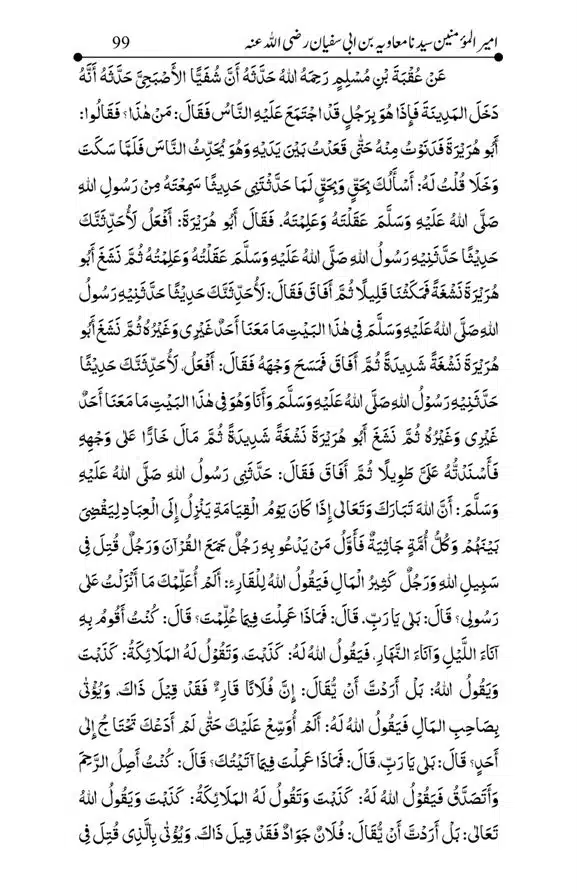 امیر المؤمنین سیدنا معاویہ بن ابی سفیان رضی اللہ عنہ 99
عَنْ عُقْبَةَ بْنِ مُسْلِمٍ رَحِمَهُ اللهُ حَدَّثَهُ أَنَّ شُفَيًّا الأَصْبَحِيَّ حَدَّثَهُ أَنَّهُ
دَخَلَ المَدِينَةَ فَإِذَا هُوَ بِرَجُلٍ قَدْ اجْتَمَعَ عَلَيْهِ النَّاسُ فَقَالَ: مَنْ هٰذَا؟ فَقَالُوا:
أَبُو هُرَيْرَةَ فَدَنَوْتُ مِنْهُ حَتّٰى قَعَدْتُ بَيْنَ يَدَيْهِ وَهُوَ يُحَدِّثُ النَّاسَ فَلَمَّا سَكَتَ
وَخَلَا قُلْتُ لَهُ: أَسْأَلُكَ بِحَقٍّ وَبِحَقٍّ لَمَا حَدَّثْتَنِي حَدِيثًا سَمِعْتَهُ مِنْ رَسُولِ اللهِ
صَلَّى اللهُ عَلَيْهِ وَسَلَّمَ عَقَلْتَهُ وَعَلِمْتَهُ. فَقَالَ أَبُو هُرَيْرَةَ: أَفْعَلُ لَأُحَدِّثَنَّكَ
حَدِيثًا حَدَّثَنِيهِ رَسُولُ اللهِ صَلَّى اللهُ عَلَيْهِ وَسَلَّمَ عَقَلْتُهُ وَعَلِمْتُهُ ثُمَّ نَشَغَ أَبُو
هُرَيْرَةَ نَشْغَةً فَمَكَثْنَا قَلِيلًا ثُمَّ أَفَاقَ فَقَالَ: لَأُحَدِّثَنَّكَ حَدِيثًا حَدَّثَنِيهِ رَسُولُ
اللهِ صَلَّى اللهُ عَلَيْهِ وَسَلَّمَ فِي هٰذَا البَيْتِ مَا مَعَنَا أَحَدٌ غَيْرِي وَغَيْرُهُ ثُمَّ نَشَغَ أَبُو
هُرَيْرَةَ نَشْغَةً شَدِيدَةً ثُمَّ أَفَاقَ فَمَسَحَ وَجْهَهُ فَقَالَ: أَفْعَلُ، لَأُحَدِّثَنَّكَ حَدِيثًا
حَدَّثَنِيهِ رَسُوْلُ اللهِ صَلَّى اللهُ عَلَيْهِ وَسَلَّمَ وَأَنَا وَهُوَ فِي هٰذَا البَيْتِ مَا مَعَنَا أَحَدٌ
غَيْرِي وَغَيْرُهُ ثُمَّ نَشَغَ أَبُو هُرَيْرَةَ نَشْغَةً شَدِيدَةً ثُمَّ مَالَ خَارًّا عَلٰى وَجْهِهِ
فَأَسْنَدْتُهُ عَلَيَّ طَوِيلًا ثُمَّ أَفَاقَ فَقَالَ: حَدَّثَنِي رَسُولُ اللهِ صَلَّى اللهُ عَلَيْهِ
وَسَلَّمَ: أَنَّ اللهَ تَبَارَكَ وَتَعَالٰى إِذَا كَانَ يَوْمُ الْقِيَامَةِ يَنْزِلُ إِلَى الْعِبَادِ لِيَقْضِيَ
بَيْنَهُمْ وَكُلُّ أُمَّةٍ جَاثِيَةٌ فَأَوَّلُ مَنْ يَدْعُو بِهِ رَجُلٌ جَمَعَ الْقُرْآنَ وَرَجُلٌ قُتِلَ فِي
سَبِيلِ اللهِ وَرَجُلٌ كَثِيرُ الْمَالِ فَيَقُولُ اللهُ لِلْقَارِءِ: أَلَمْ أُعَلِّمْكَ مَا أَنْزَلْتُ عَلٰى
رَسُولِي؟ قَالَ: بَلٰى يَا رَبِّ. قَالَ: فَمَاذَا عَمِلْتَ فِيمَا عُلِّمْتَ؟ قَالَ: كُنْتُ أَقُومُ بِهِ
آنَاءَ اللَّيْلِ وَآنَاءَ النَّهَارِ. فَيَقُولُ اللهُ لَهُ: كَذَبْتَ، وَتَقُولُ لَهُ المَلَائِكَةُ: كَذَبْتَ
وَيَقُولُ اللهُ: بَلْ أَرَدْتَ أَنْ يُّقَالَ: إِنَّ فُلَانًا قَارِءٌ فَقَدْ قِيْلَ ذَاكَ، وَيُؤْتٰى
بِصَاحِبِ المَالِ فَيَقُولُ اللهُ لَهُ: أَلَمْ أُوَسِّعْ عَلَيْكَ حَتّٰى لَمْ أَدَعْكَ تَحْتَاجُ إِلٰى
أَحَدٍ؟ قَالَ: بَلٰى يَا رَبِّ. قَالَ: فَمَاذَا عَمِلْتَ فِيمَا آتَيْتُكَ؟ قَالَ: كُنْتُ أَصِلُ الرَّحِمَ
وَأَتَصَدَّقُ فَيَقُوْلُ اللهُ لَهُ: كَذَبْتَ وَتَقُولُ لَهُ المَلَائِكَةُ: كَذَبْتَ وَيَقُولُ اللهُ
تَعَالٰى: بَلْ أَرَدْتَ أَنْ يُّقَالَ: فُلَانٌ جَوَادٌ فَقَدْ قِيلَ ذَاكَ، وَيُؤْتٰى بِالَّذِي قُتِلَ فِي